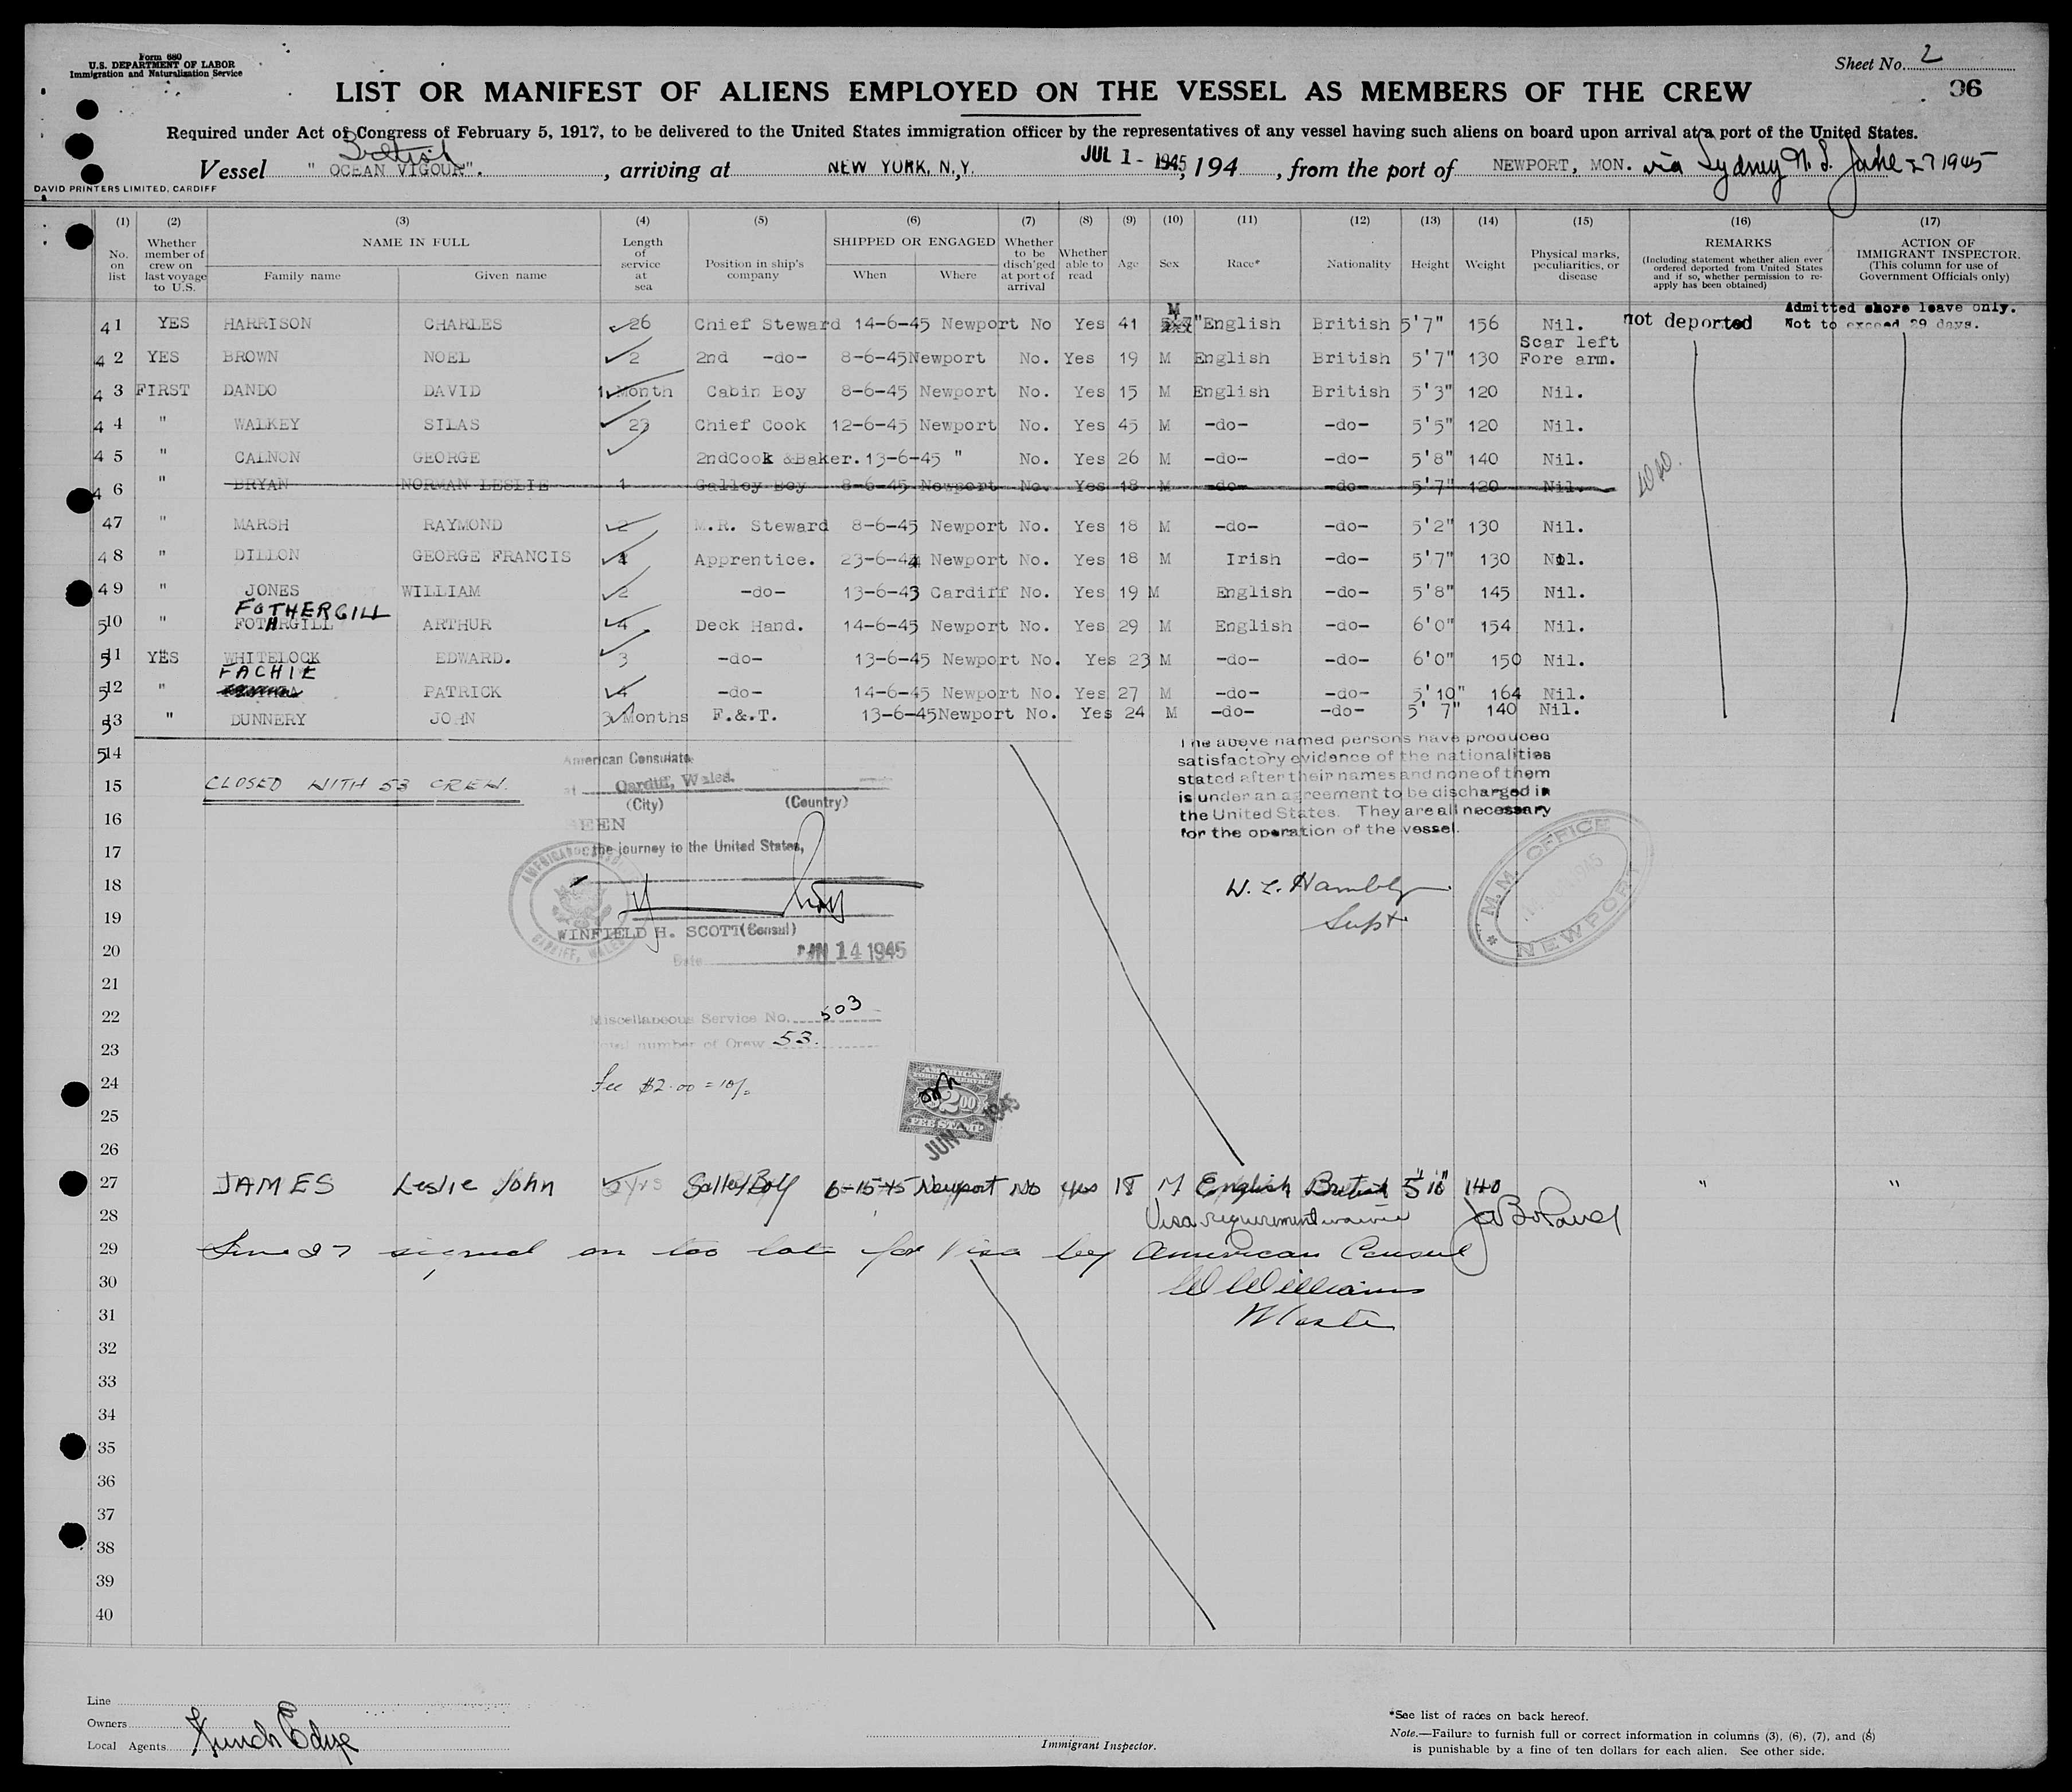 Form 680
U.S. DEPARTMENT OF LABOR
Immigration and Naturalization Service
Sheet No. 2
96
LIST OR MANIFEST OF ALIENS EMPLOYED ON THE VESSEL AS MEMBERS OF THE CREW
Required under Act of Congress of February 5, 1917, to be delivered to the United States immigration officer by the representatives of any vessel having such aliens on board upon arrival at a port of the United States.
British
Vessel " OCEAN VIGOUR". , arriving at NEW YORK, N.,Y. JUL 1 - 1945, 194 , from the port of NEWPORT, MON. via Sydney N.S. June 27 1945
DAVID PRINTERS LIMITED, CARDIFF
(1) (2) (3) (4) (5) (6) (7) (8) (9) (10) (11) (12) (13) (14) (15) (16) (17)
No. on list
Whether member of crew on last voyage to U.S.
NAME IN FULL
Family name Given name
Length of service at sea
Position in ship's company
SHIPPED OR ENGAGED
When Where
Whether to be disch'ged at port of arrival
Whether able to read
Age Sex Race* Nationality Height Weight
Physical marks, peculiarities, or disease
REMARKS
(Including statement whether alien ever ordered deported from United States and if so, whether permission to re-apply has been obtained)
ACTION OF IMMIGRANT INSPECTOR.
(This column for use of Government Officials only)
41 YES HARRISON CHARLES 26 Chief Steward 14-6-45 Newport No Yes 41 M English British 5'7" 156 Nil. not deported Admitted shore leave only. Not to exceed 29 days.
42 YES BROWN NOEL 2 2nd -do- 8-6-45 Newport No. Yes 19 M English British 5'7" 130 Scar left Fore arm.
43 FIRST DANDO DAVID 1 Month Cabin Boy 8-6-45 Newport No. Yes 15 M English British 5'3" 120 Nil.
44 " WALKEY SILAS 23 Chief Cook 12-6-45 Newport No. Yes 45 M -do- -do- 5'5" 120 Nil.
45 " CALNON GEORGE 2ndCook &Baker. 13-6-45 " No. Yes 26 M -do- -do- 5'8" 140 Nil.
46 " BRYAN NORMAN LESLIE 1 Galley Boy 8-6-45 Newport No. Yes 18 M -do- -do- 5'7" 120 Nil.
47 " MARSH RAYMOND 2 M.R. Steward 8-6-45 Newport No. Yes 18 M -do- -do- 5'2" 130 Nil.
48 " DILLON GEORGE FRANCIS 4 Apprentice. 23-6-44 Newport No. Yes 18 M Irish -do- 5'7" 130 Nil.
49 " JONES WILLIAM 2 -do- 13-6-43 Cardiff No. Yes 19 M English -do- 5'8" 145 Nil.
FOTHERGILL
510 " FOTHRGILL ARTHUR 4 Deck Hand. 14-6-45 Newport No. Yes 29 M English -do- 6'0" 154 Nil.
511 YES WHITELOCK EDWARD. 3 -do- 13-6-45 Newport No. Yes 23 M -do- -do- 6'0" 150 Nil.
FACHIE
512 " PATRICK 4 -do- 14-6-45 Newport No. Yes 27 M -do- -do- 5'10" 164 Nil.
513 " DUNNERY JOHN 3 Months F.&.T. 13-6-45 Newport No. Yes 24 M -do- -do- 5' 7" 140 Nil.
514
15 CLOSED WITH 53 CREW.
American Consulate
at Cardiff, Wales.
(City) (Country)
SEEN
the journey to the United States,
AMERICAN CONSUL
CARDIFF, WALES
WINFIELD H. SCOTT (Consul)
Date JUN 14 1945
The above named persons have produced
satisfactory evidence of the nationalities
stated after their names and none of them
is under an agreement to be discharged in
the United States. They are all necessary
for the operation of the vessel.
W. L. Hambly
Supt.
M.M. OFFICE
NEWPORT
16
17
18
19
20
21
22
23
24
25
26
Miscellaneous Service No. 503
Total number of Crew 53.
Fee $2.00 = 10/-
AMERICAN
FOREIGN SERVICE
2.00
FEE STAMP
JUN 1945
27 JAMES Leslie John 2 yrs Galley Boy 6-15-45 Newport No yes 18 M English British 5'10" 140 " "
28 Visa requirement waived
29 June 27 signed on too late for Visa by American Consul
30 W Williams
31 Master
32
33
34
35
36
37
38
39
40
Line
Owners
Local Agents Funch Edye
Immigrant Inspector.
*See list of races on back hereof.
Note.—Failure to furnish full or correct information in columns (3), (6), (7), and (8)
is punishable by a fine of ten dollars for each alien. See other side.